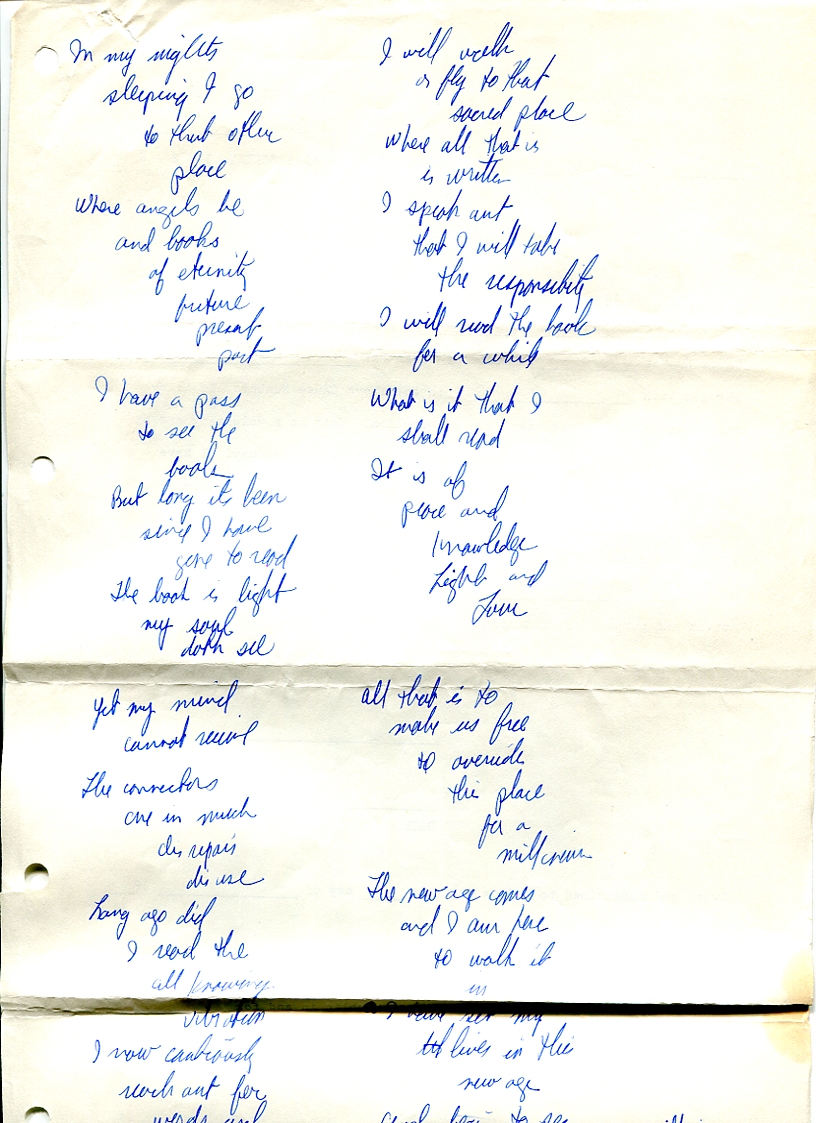 In my nights
sleeping I go
to that other
place
Where angels be
and books
of eternity
future
present
past
I have a pass
to see the
book
But long its been
since I have
gone to read
The book is light
my soul
doth see
Yet my mind
cannot receive
The connectors
are in much
disrepair
disuse
Long ago did
I read the
all knowing
vibration
I now cautiously
reach out for
words and
I will walk
or fly to that
sacred place
Where all that is
is written
I speak out
that I will take
the responsibity
I will read the book
for a while
What is it that I
shall read
It is of
peace and
knowledge
Light and
Love
all that is to
make us free
to override
this place
for a
millenium
The new age comes
and I am here
to walk it
in
I have set my
lives in this
new age